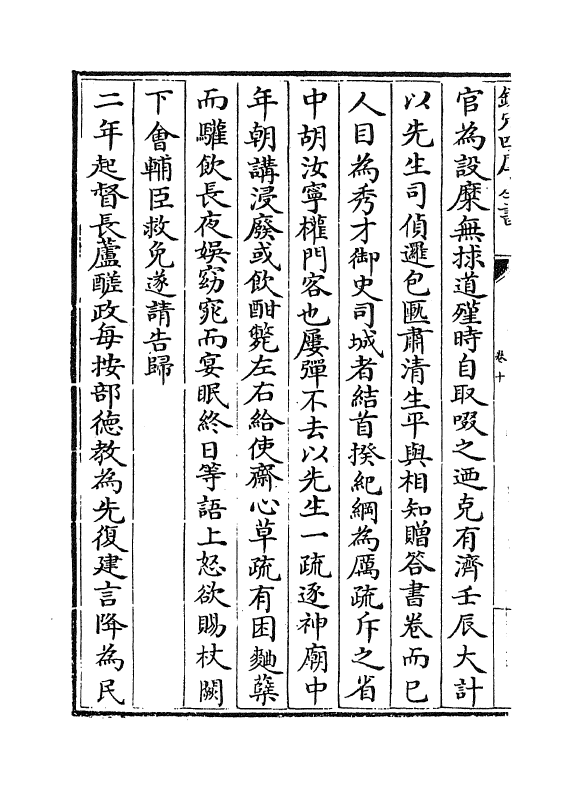 欽定四庫全書
卷十
官為設糜無捄道殣時自取啜之迺克有濟壬辰大計
以先生司偵邏包匭肅清生平與相知贈答書卷而已
人目為秀才御史司城者結首揆紀綱為厲疏斥之省
中胡汝寧權門客也屢彈不去以先生一疏逐神廟中
年朝講浸廢或飲酣斃左右給使齋心草疏有困麯蘖
而驩飲長夜娛窈窕而宴眠終日等語上怒欲賜杖闕
下會輔臣救免遂請告歸
二年起督長蘆醝政每按部德教為先復建言降為民